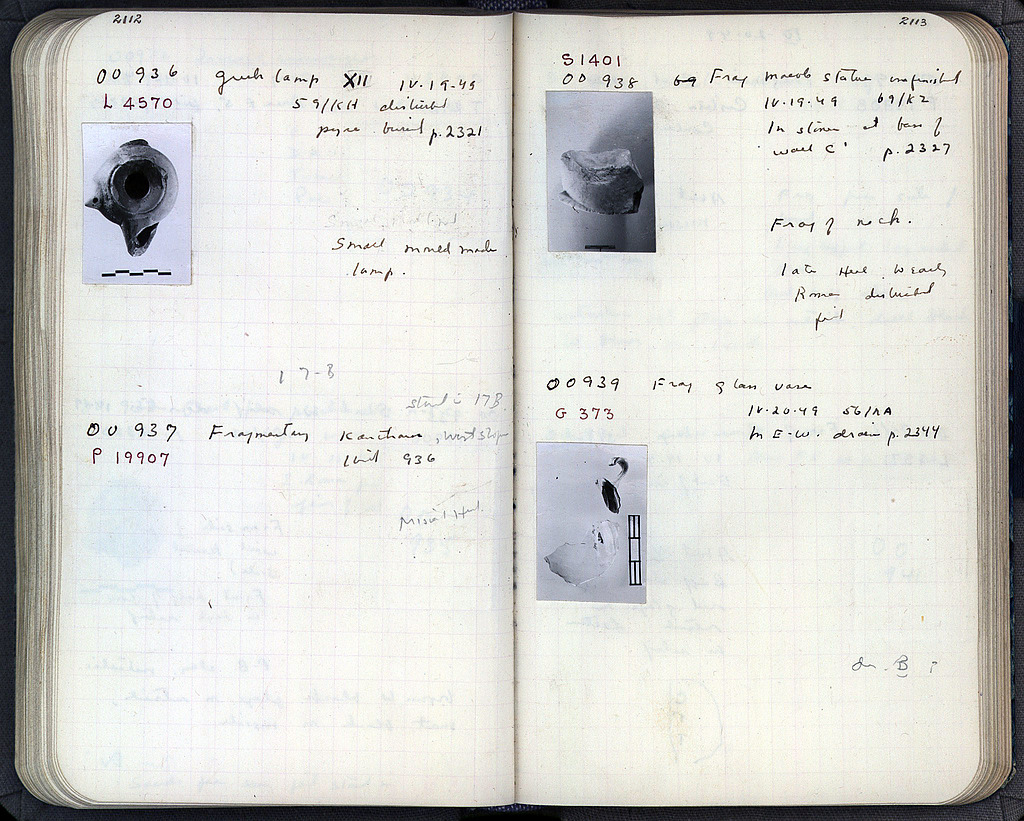 2112
OO 936 Greek lamp XII IV-19-49
L 4570 59/KH disturbed
pyre burial p.2321
Small mould made
lamp.
17-B
stand in 17B
OO 937 Fragmentary Kantharos, West Slope
P 19907 Unit 936
Missing
2113
S1401
OO 938 Frag marble statue unfinished
IV-19-49 69/K2
In stones at base of
'wall C' p.2327
Frag of neck.
late Hel. early
Roman disturbed
fill
OO939 Frag glass vase
G 373 IV-20-49 56/
In E-W. drain p.2344
B ?